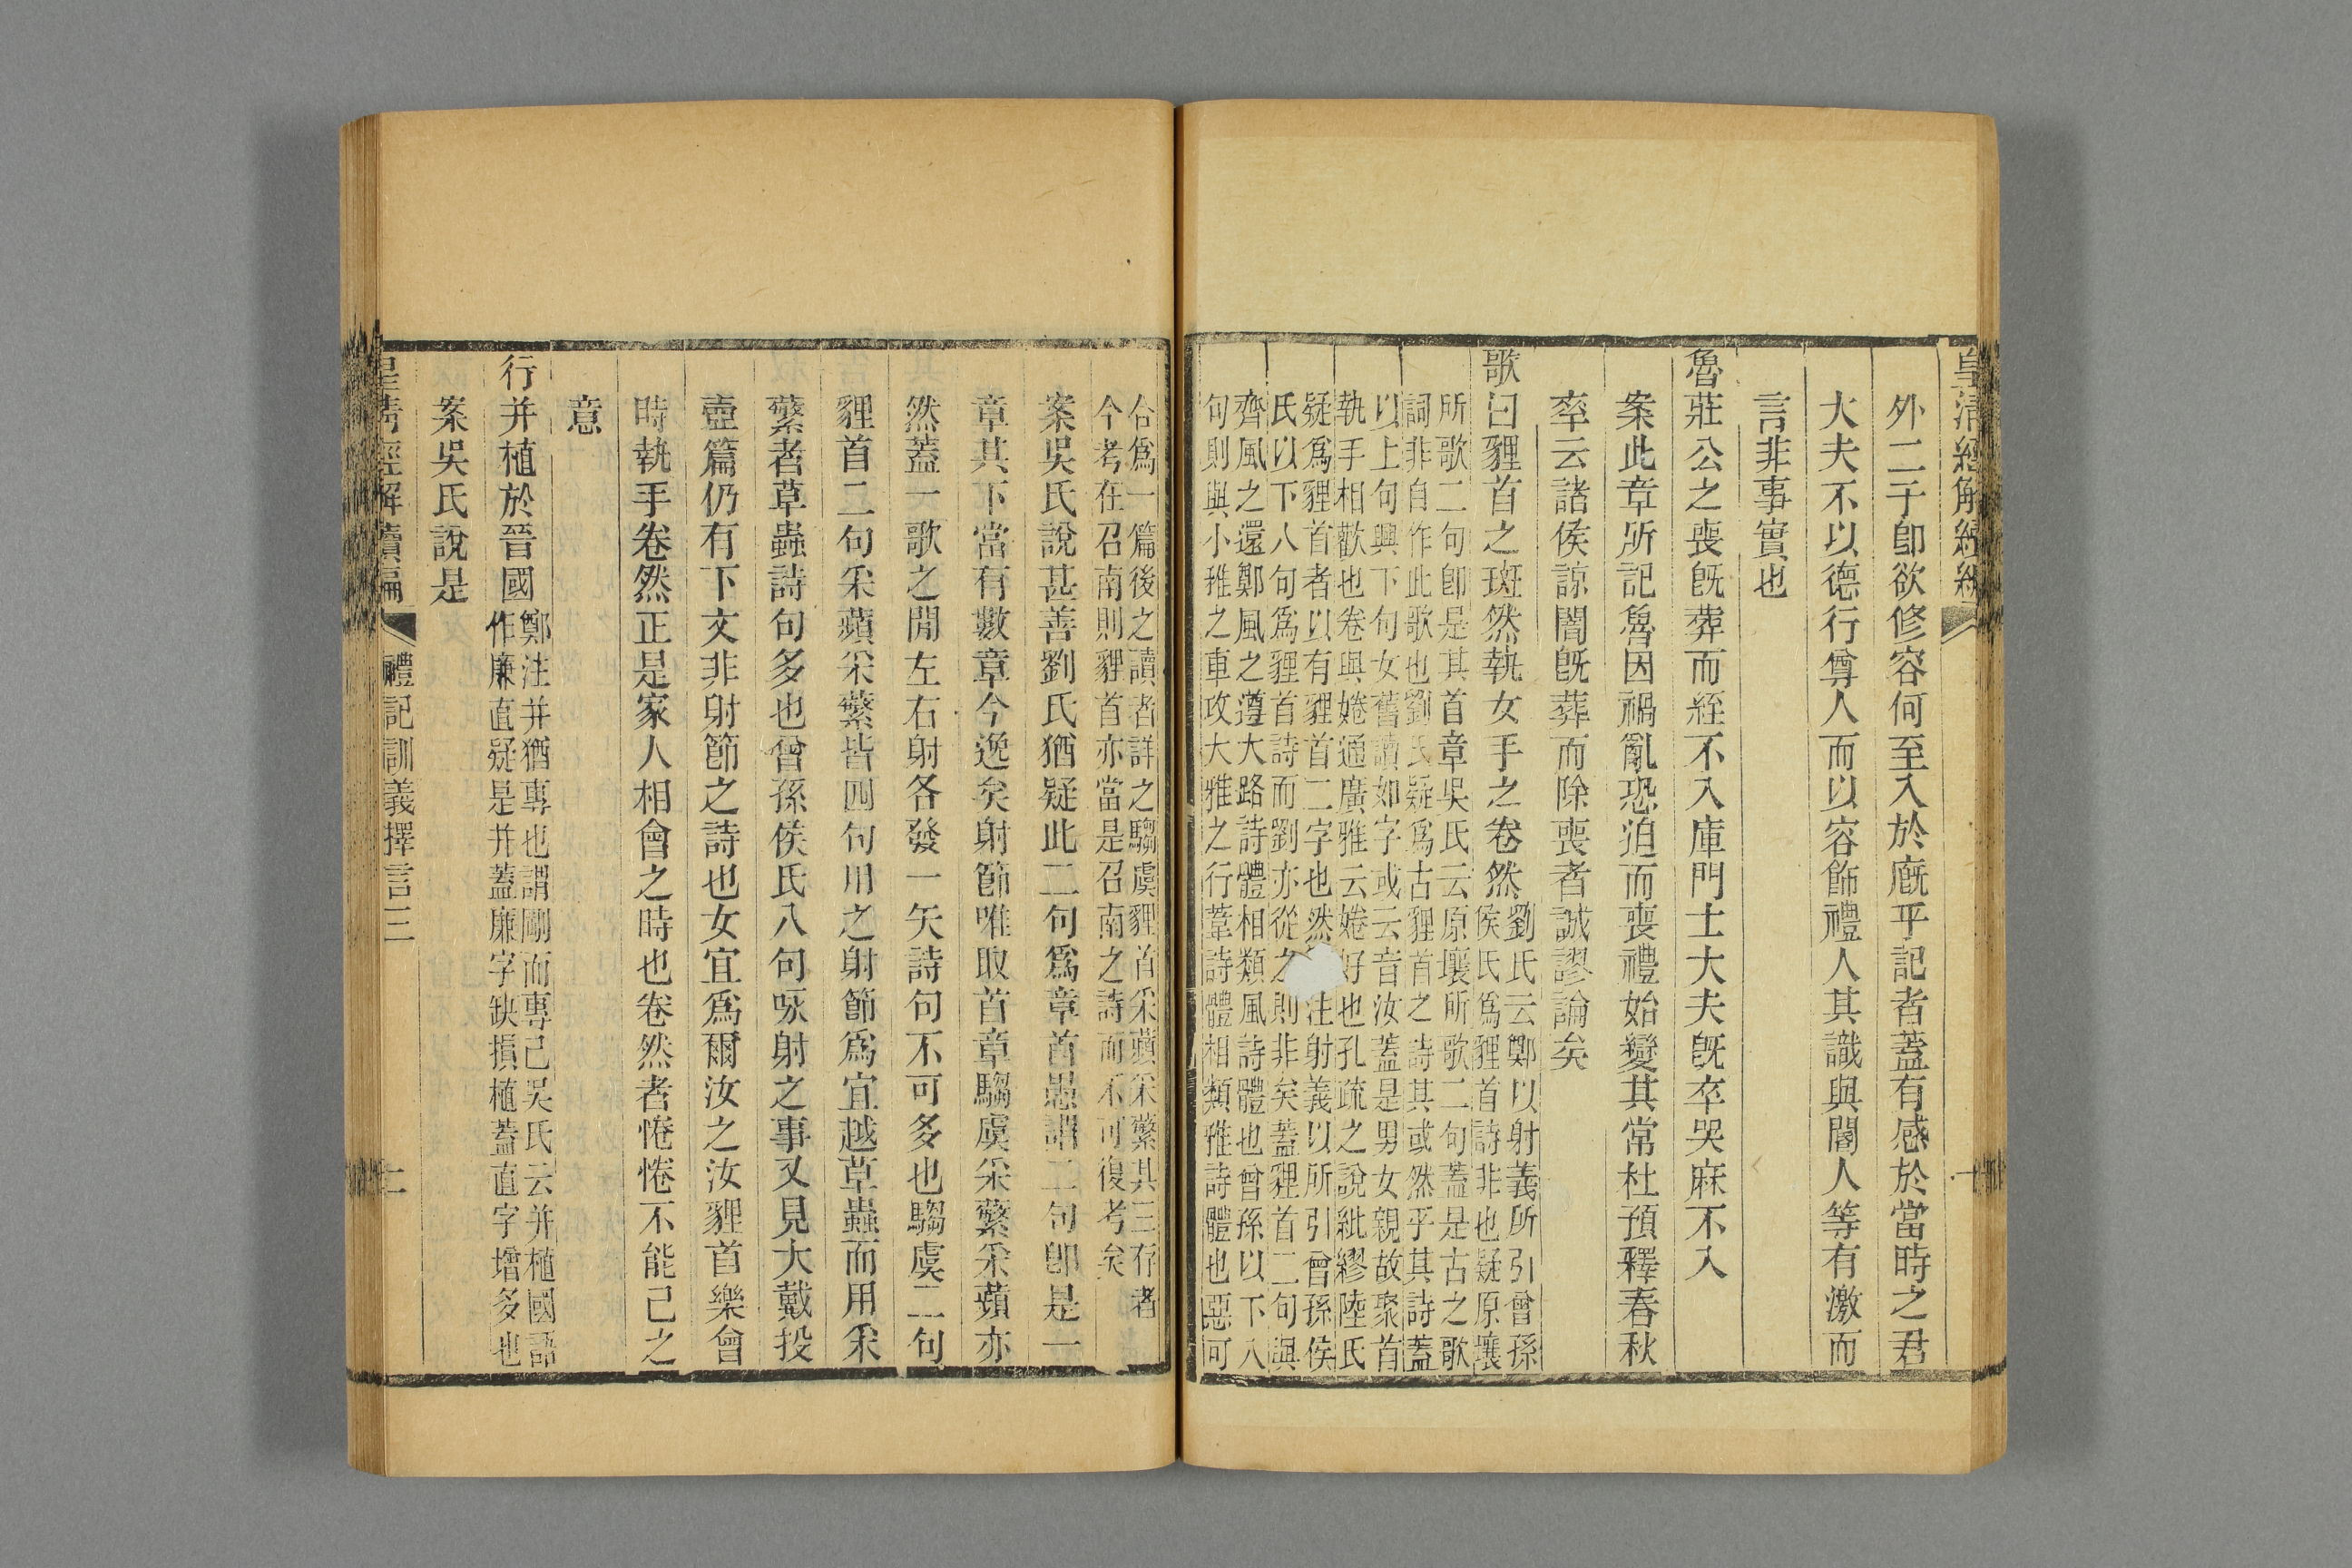 皇清經解續編
外二子卽欲修容何至入於廐乎記者蓋有感於當時之君
大夫不以德行尊人而以容飾禮人其識與閽人等有激而
言非事實也
魯莊公之喪旣葬而絰不入庫門士大夫旣卒哭麻不入
案此章所記魯因禍亂恐迫而喪禮始變其常杜預釋春秋
率云諸侯諒闇旣葬而除喪者誠謬論矣
歌曰貍首之斑然執女手之卷然
劉氏云鄭以射義所引曾孫
侯氏爲貍首詩非也疑原壤
所歌二句卽是其首章吳氏云原壤所歌二句蓋是古之歌
詞非自作此歌也劉氏疑爲古貍首之詩其或然乎其詩蓋
以上句興下句女舊讀如字或云音汝蓋是男女親故聚首
執手相歡也卷與婘通廣雅云婘好也孔疏之說紕繆陸氏
疑爲貍首者以有貍首二字也然注射義以所引曾孫侯
氏以下八句爲貍首詩而劉亦從之則非矣蓋貍首二句與
齊風之還鄭風之遵大路詩體相類風詩體也曾孫以下八
句則與小雅之車攻大雅之行葦詩體相類雅詩體也惡可
合爲一篇後之讀者詳之騶虞貍首采蘋采蘩其三存者
今考在召南則貍首亦當是召南之詩而不可復考矣
案吳氏說甚善劉氏猶疑此二句爲章首愚謂二句卽是一
章其下當有數章今逸矣射節唯取首章騶虞采蘩采蘋亦
然蓋一歌之閒左右射各發一矢詩句不可多也騶虞二句
貍首二句采蘋采蘩皆四句用之射節爲宜越草蟲而用采
蘩者草蟲詩句多也曾孫侯氏八句咏射之事又見大戴投
壺篇仍有下文非射節之詩也女宜爲爾汝之汝貍首樂會
時執手卷然正是家人相會之時也卷然者惓惓不能已之
意
行并植於晉國
鄭注并猶專也謂剛而專己吳氏云并植國語
作廉直疑是并蓋廉字缺損植蓋直字增多也
案吳氏說是
皇清經解續編
禮記訓義擇言三